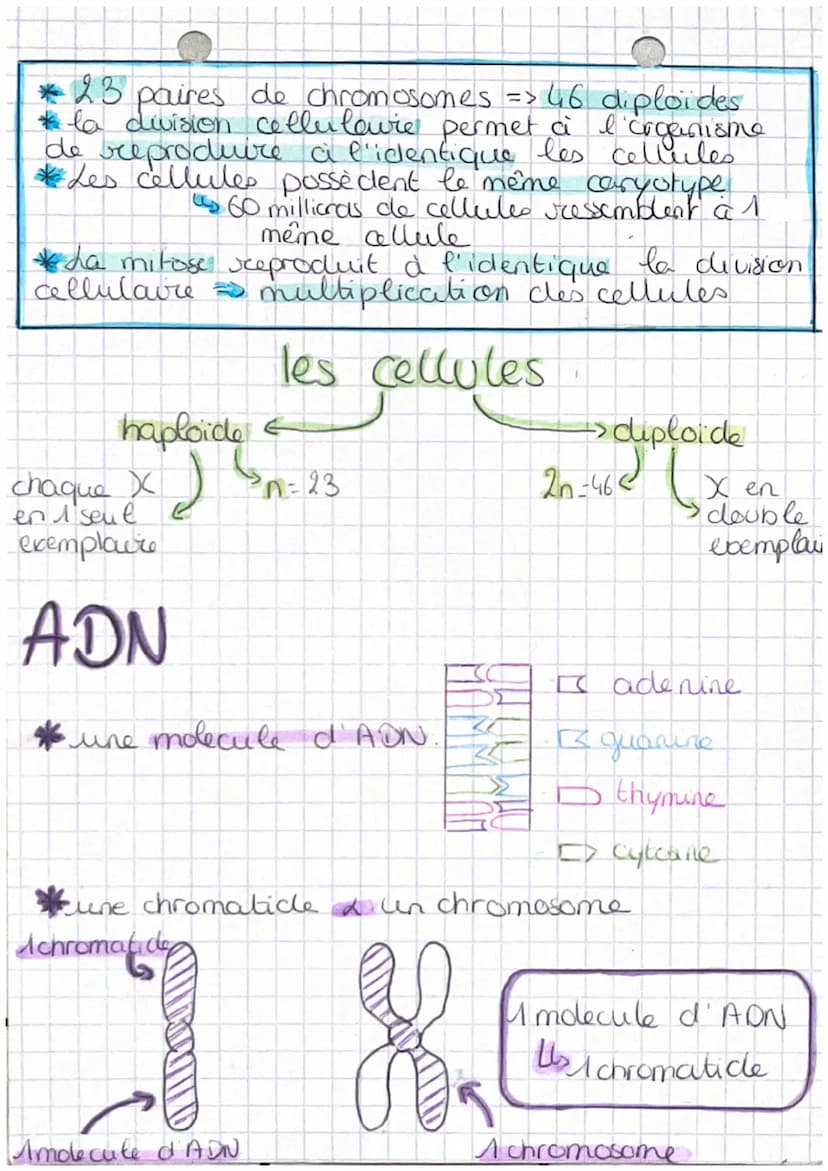 * 23 paires de chromosomes => 46 diploïdes
* la division cellulaire permet à l'organisme
de reproduire à l'identique les cellules
* Les cellules possèdent le même caryotype
↳ 60 milliards de cellules ressemblent à 1
même cellule
* La mitose reproduit à l'identique la division
cellulaire => multiplication des cellules
les cellules
haploïde
diploïde
chaque X
en 1 seul
exemplaire
n = 23
2n = 46
X en
double
exemplai
ADN
* une molecule d'ADN.
adenine
guanine
thymine
cytosine
* une chromatide & un chromosome
1 chromatide
1 molecule d'ADN
1 chromosome
1 molecule d'ADN
↳ 1 chromatide